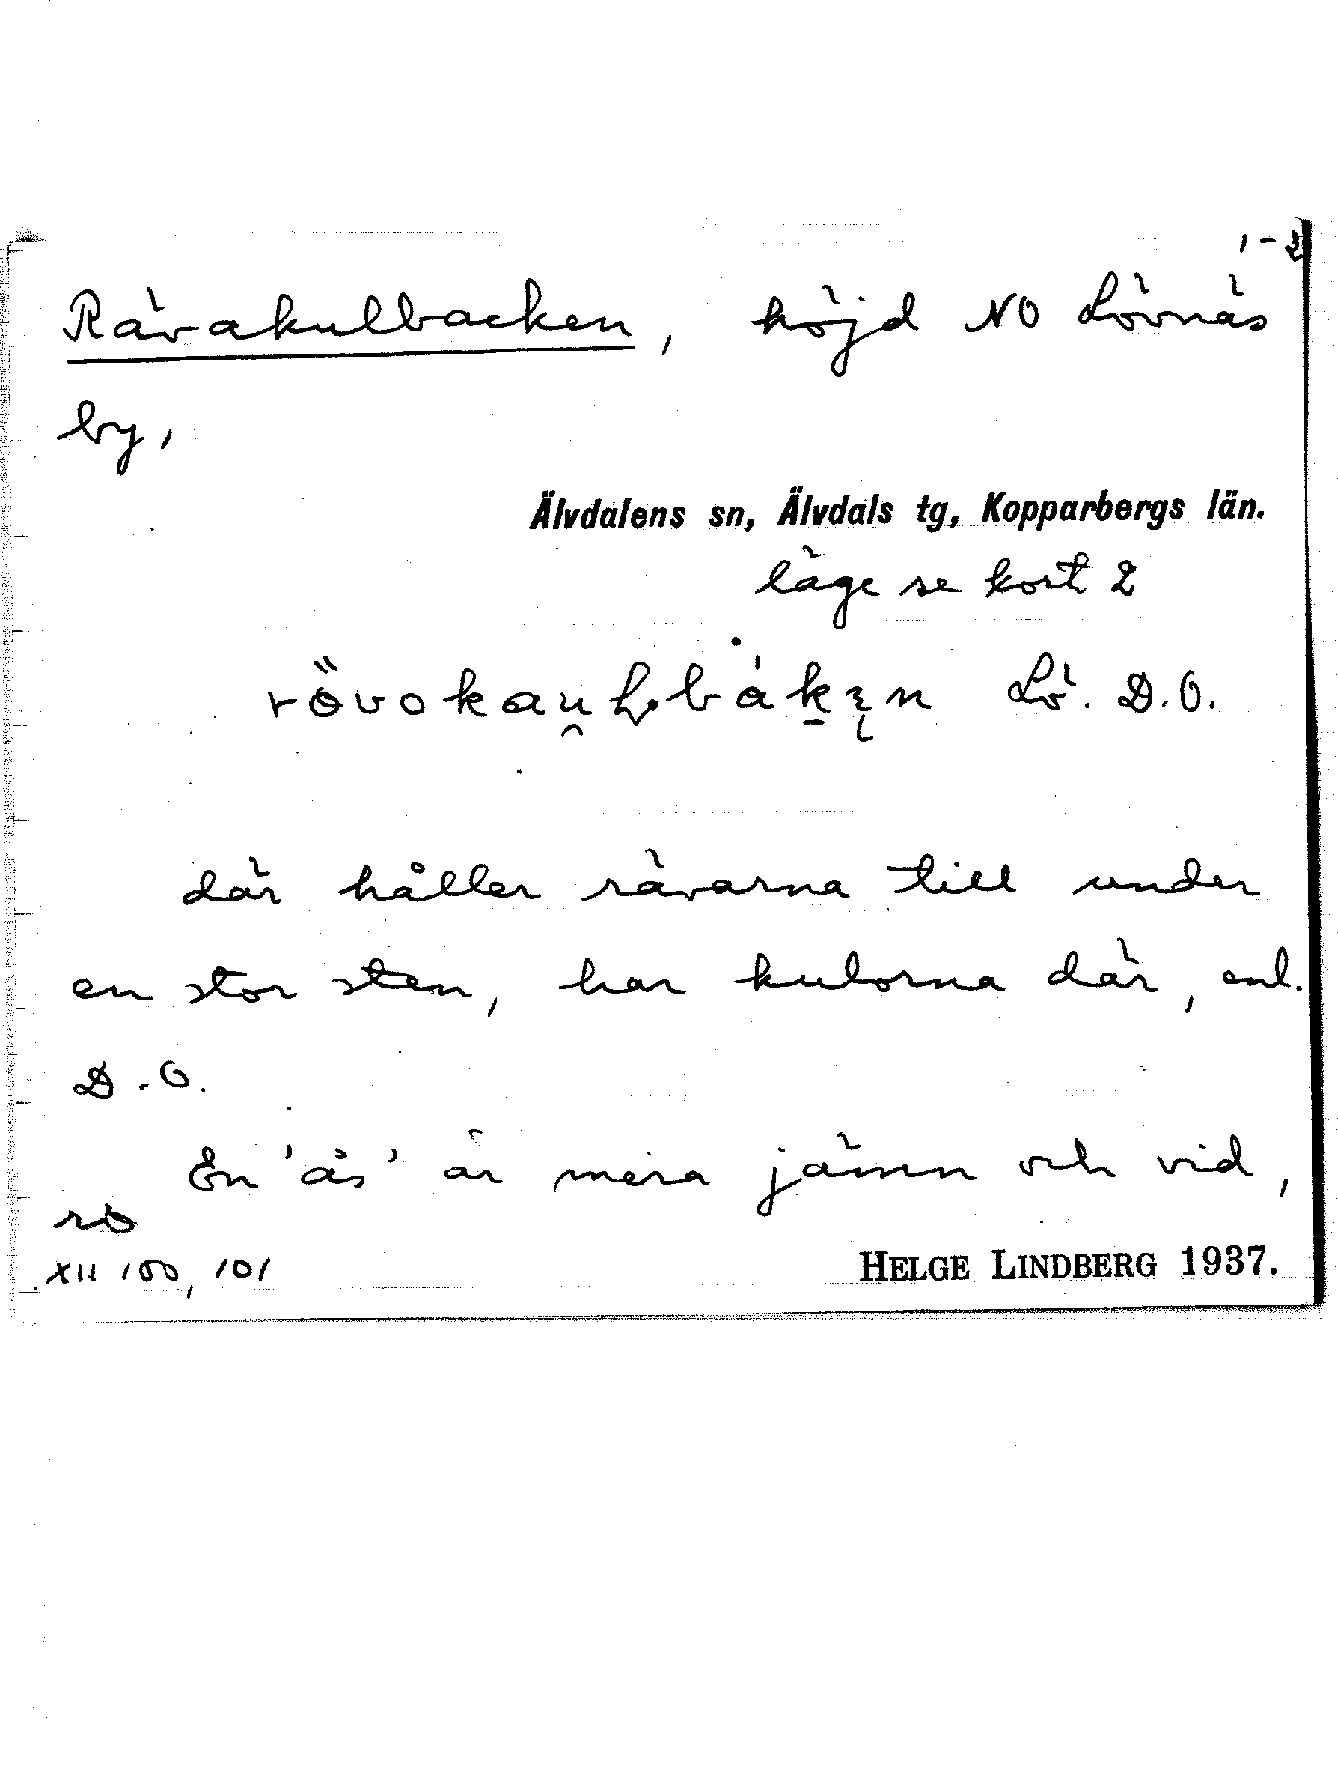 1-2
Rävakulbacken, höjd NO Lövnäs
by,
Älvdalens sn, Älvdals tg, Kopparbergs län.
läge se kort 2
Lö. D.O.
där håller rävarna till under
en stor sten, har kulorna där, enl.
D.O.
En 'ås' är mera jämn och vid,
XII 100, 101
HELGE LINDBERG 1937.